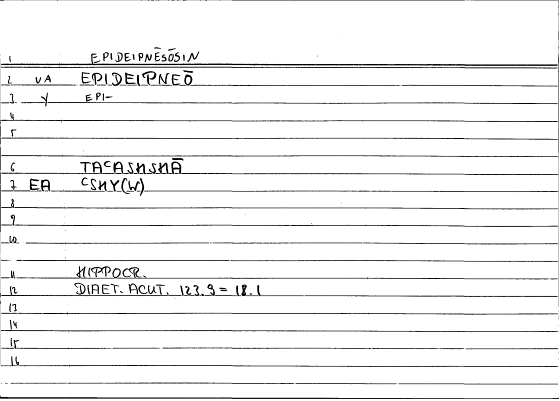 1 EPIDEIPNĒSŌSIN
2 VA EPIDEIPNEŌ
3 Y EPI-
4
5
6 TAᶜASHSHĀ
7 EA ᶜSHY(W)
8
9
10
11 HIPPOCR.
12 DIAET. ACUT. 123.9 = 18.1
13
14
15
16